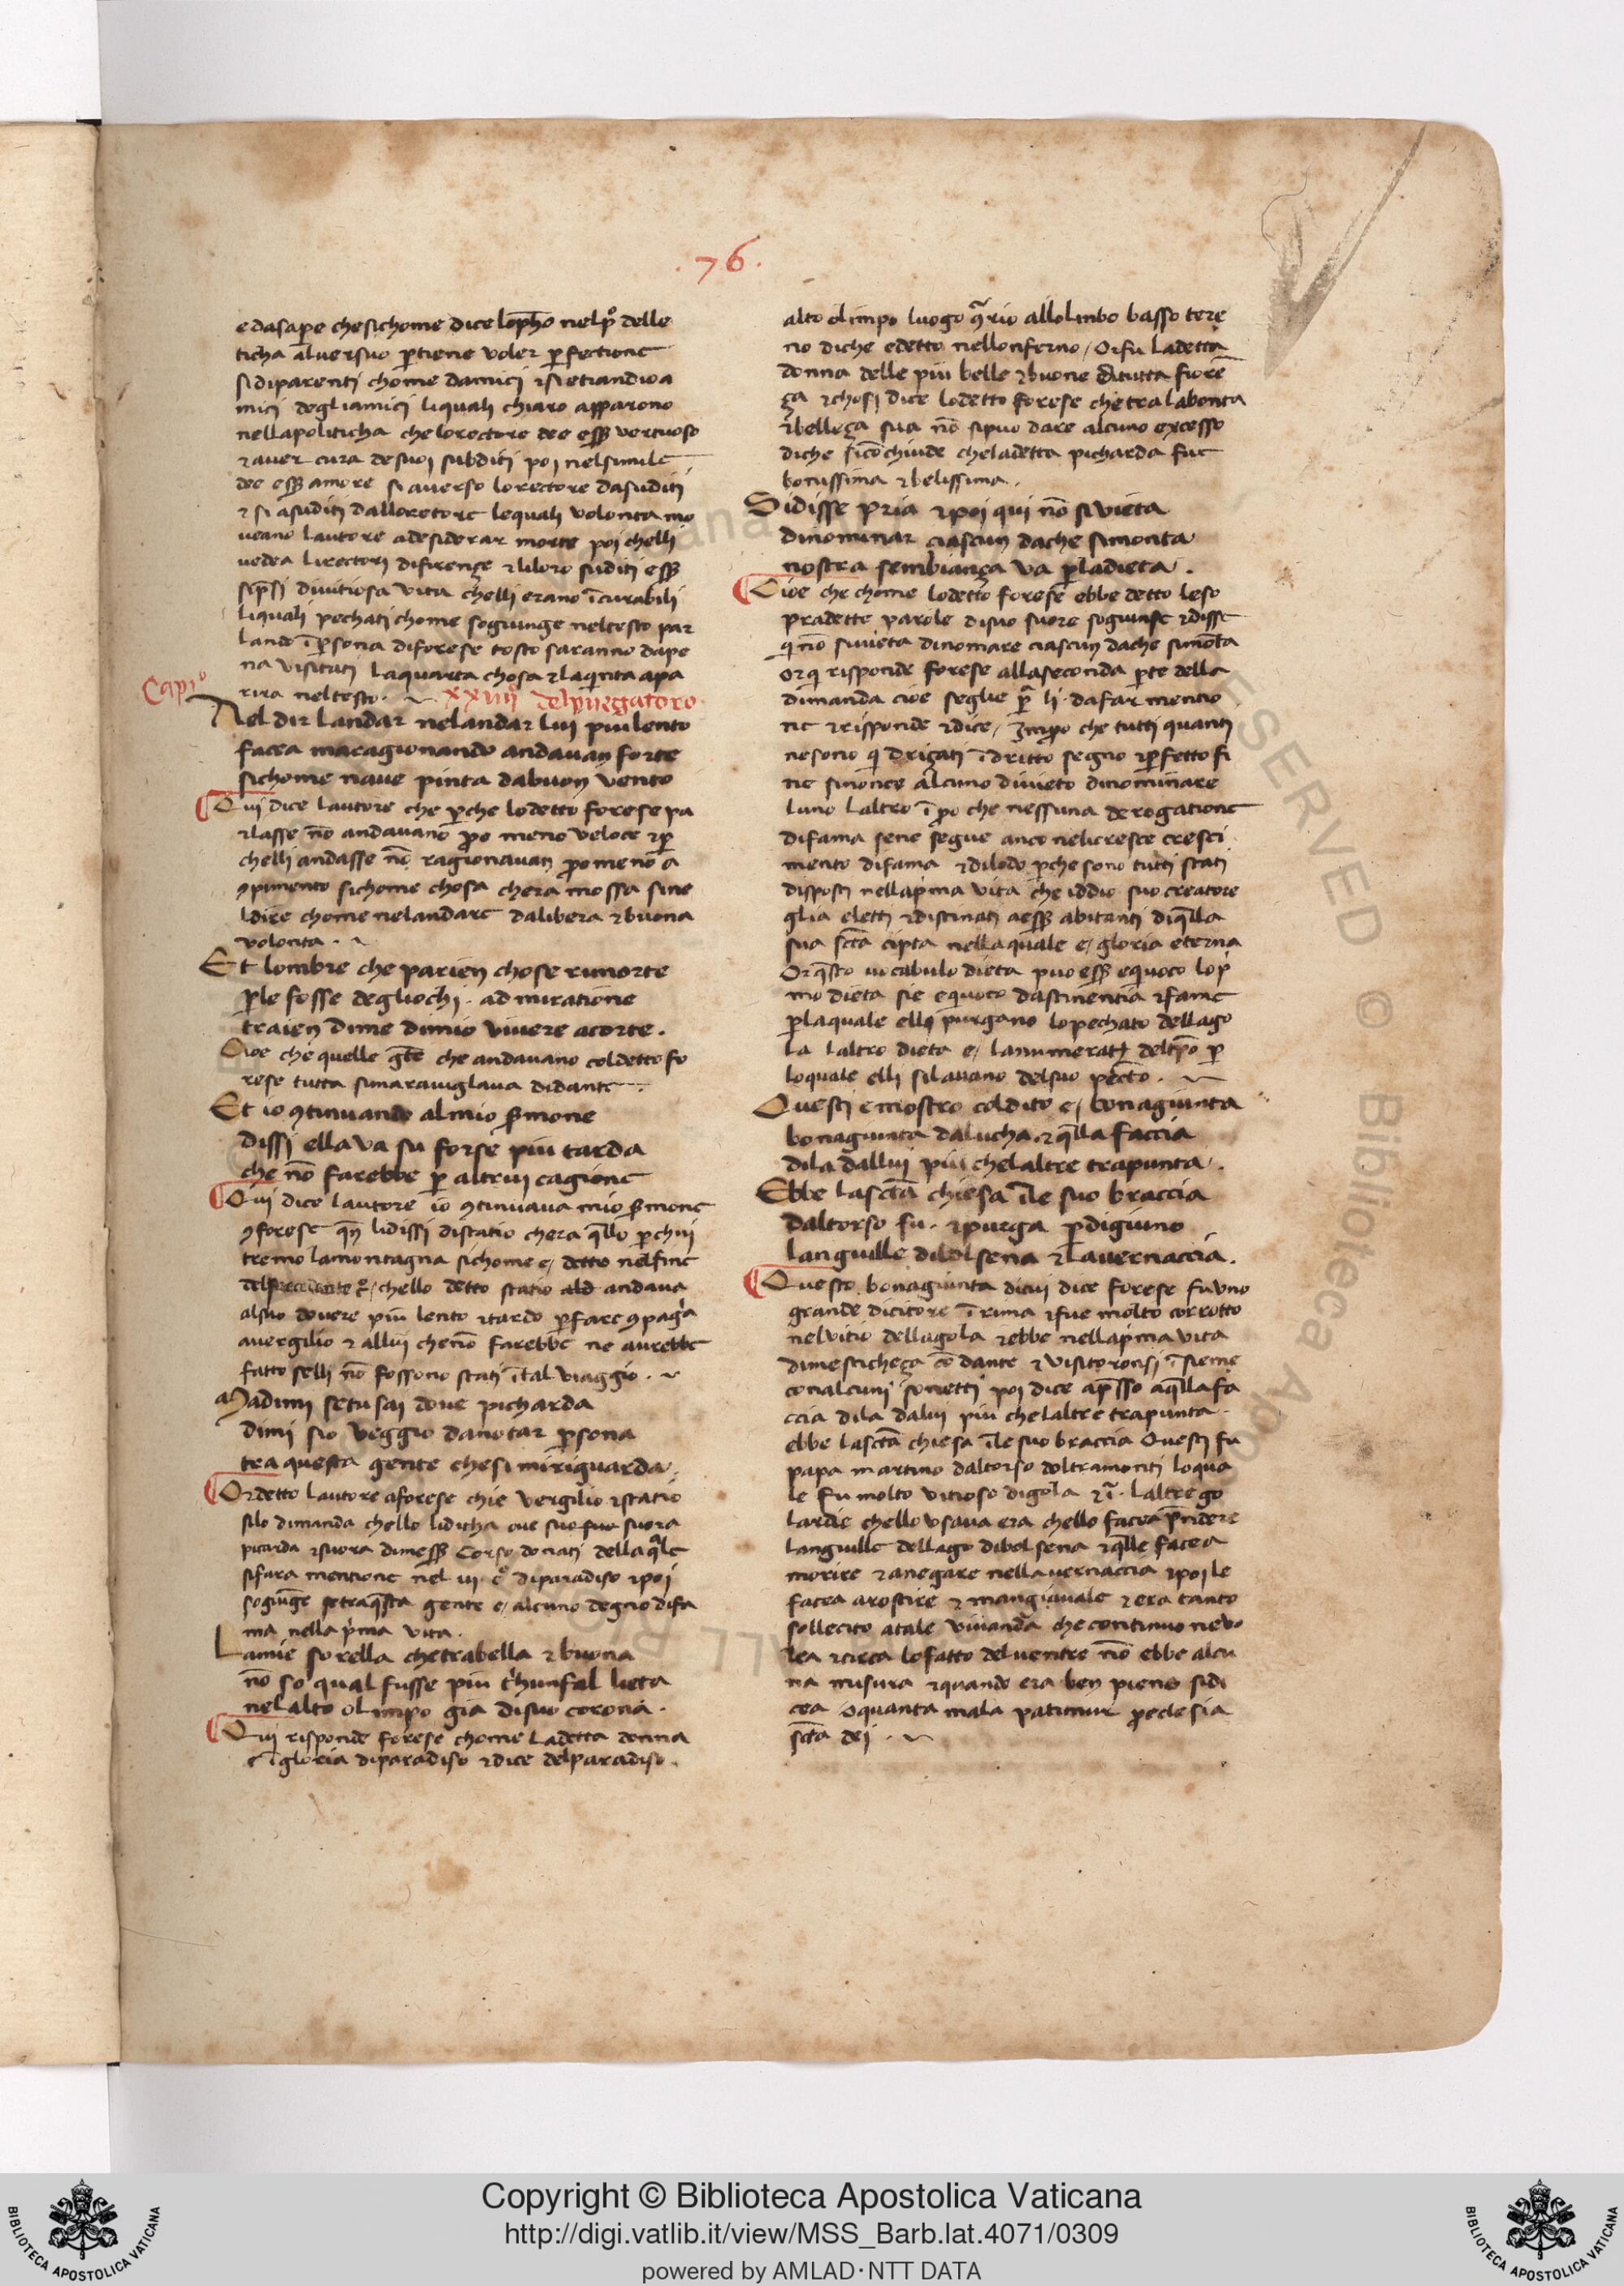 .76.
e dasape chesichome dice lopħo nelpº delle
ticha aluersuo ptiene voler pfectione
si diparenti chome damici ⁊ si etiandio a
mici degliamici liquali chiaro apparono
nellapoliticha che lorectore dee esser vertuoso
⁊ auer cura de suoi subditi poi nelsimile
dee esser amore si auerso lorectore dasuditi
⁊ si asuditi dalloretore lequali volonta mo
ueano lautore adesiderar morte poi chelli
vedea lirectori difirençe ⁊ liloro suditi esser
divitiosa vita chelli erano īcurabili
liquali pechati chome sogiunge neltesto par
lando ī psona diforese tosto saranno dape
na visitati laquarta chosa ⁊ laqinta apa
rira neltesto.
Capiº xxiiiiº delpurgatoro
Nel dir landar nelandar lui piulento
facea maragionando andauan forte
sichome naue pinta dabuon vento
Qui dice lautore che pche lodetto forese pa
rlasse nō andauano po meno veloce ⁊ p
chelli andasse nō ragionauan po meno a
9pimento sichome chosa chera mossa sine
ldire chome nelandare dalibera ⁊ buona
volonta.
Et lombre che parien chose rimorte
ple fosse degliochi. admiratione
traien dime dimio vivere acorte.
Cioe che quelle gēte che andauano coldetto fo
rese tutta simarauiglaua didante.
Et io 9tinuando almio smone
dissi ella va su forse piu tarda
che nō farebbe p altrui cagione
Qui dice lautore io 9tinuaua mio smone
9forese qn lidissi distatio chera qllo pchui
tremo lamontagna sichome e/ detto nelfine
delprecedente cº/chello detto statio ald andaua
alsuo douere piu lento ⁊ tardo pfare 9pagia
avergilio ⁊ allui chenō farebbe ne aurebbe
fatto selli nō fossono stati ītal viaggio.
Madimi setu sai doue picharda
dimi sio veggio danotar psona
tra questa gente chesi miriguarda.
Or detto lautore aforese chie vergilio ⁊ statio
silo dimanda chello lidicha oue suo fua suora
picarda ⁊ suora dimesser Corso donati dellaqle
sifara mentione nel iii cº diparadiso ⁊ poi
sogiūge setraqsta gente e/ alcuno degno difa
ma nella pima vita.
Lamie sorella chetrabella ⁊ buona
nō so qual fusse piu trihunfal lieta
nelalto olimpo gia disuo corona.
Qui risponde forese chome ladetta donna
e īgloria diparadiso ⁊ dice delparadiso.
alto olimpo luogo 9trario allolinbo basso tere
no diche edetto nellonferno/ Or fu ladetta
donna delle piu belle ⁊ buone ditutta fiorē
ça ⁊ chosi dice lodetto forese chetralabonta
⁊ belleça sua nō sipuo dare alcuno excesso
diche sicōchiude cheladetta picharda fue
bonissima ⁊ belissima.
Si disse pria ⁊ poi qui nō si vieta
dinominar ciascun dache simonta
nostra sembiança va pladieta.
Cioe che chome lodetto forese ebbe detto leso
pradette parole disuo suore sogiunse ⁊ disse
qi nō sivieta dinomare ciascun dache simōta
Or qi risponde forese allaseconda pte della
dimanda cioe seglie pra li dafar mentio
ne ⁊ risponde ⁊ dice/ Impo che tutti quanti
nesono qi driçati ī dritto segno ⁊ pfetto fi
ne sinonce alcuno divieto dinominare
luno laltro ī po che nessuna derogatione
difama sene segue anco nelicresce cresci
mento difama ⁊ dilodo pche sono tutti stati
disposti nellapima vita che iddio suo creatore
glia eletti ⁊ distinati aesser abitanti diqlla
sua scta cipta nellaquale e/ gloria eterna
Or qsto uocabulo dieta puo esser equoco lopi
mo dieta sie equoco dastinentia ⁊ fame
plaquale elli purgano lopechato dellago
la laltro dieta e/ lanumeratō deltpo p
loquale elli silauano delsuo pecto.
Questi e mostro coldito e/ bonagiunta
bonagiunta dalucha. ⁊ qlla faccia
dila dallui piu chelaltre trapunta.
Ebbe lascta chiesa īle suo braccia
daltorso fu. ⁊ purga pdigiuno
languille dibolsena ⁊ lavernaccia.
Questo bonagiunta dicui dice forese fu uno
grande dicitore ī rima ⁊ fue molto corrotto
nelvitio dellagola ⁊ ebbe nellapima vita
dimesticheça cō dante ⁊ visitoronsi īsieme
conalcuni sonetti poi dice apsso aqlla fa
ccia dila dalui piu chelaltre trapunta.
ebbe lascta chiesa īle suo braccia Questi fu
papa martino daltorso doltramonti loqua
le fu molto vitioso digola ⁊ ī. laltre go
lardie chello vsaua era chello facea pndere
languille dellago dibolsena ⁊ qlle facea
morire ⁊ anegare nellavernaccia ⁊ poi le
facea arostire ⁊ mangiauale ⁊ era tanto
sollecito atale viuanda che continuo nevo
lea ⁊ circa lofatto delventre nō ebbe alcu
na misura ⁊ quando era ben pieno sidi
cea o quanta mala patimur pecclesia
scta dei.
Copyright © Biblioteca Apostolica Vaticana
http://digi.vatlib.it/view/MSS_Barb.lat.4071/0309
powered by AMLAD·NTT DATA
BIBLIOTECA APOSTOLICA VATICANA
BIBLIOTECA APOSTOLICA VATICANA